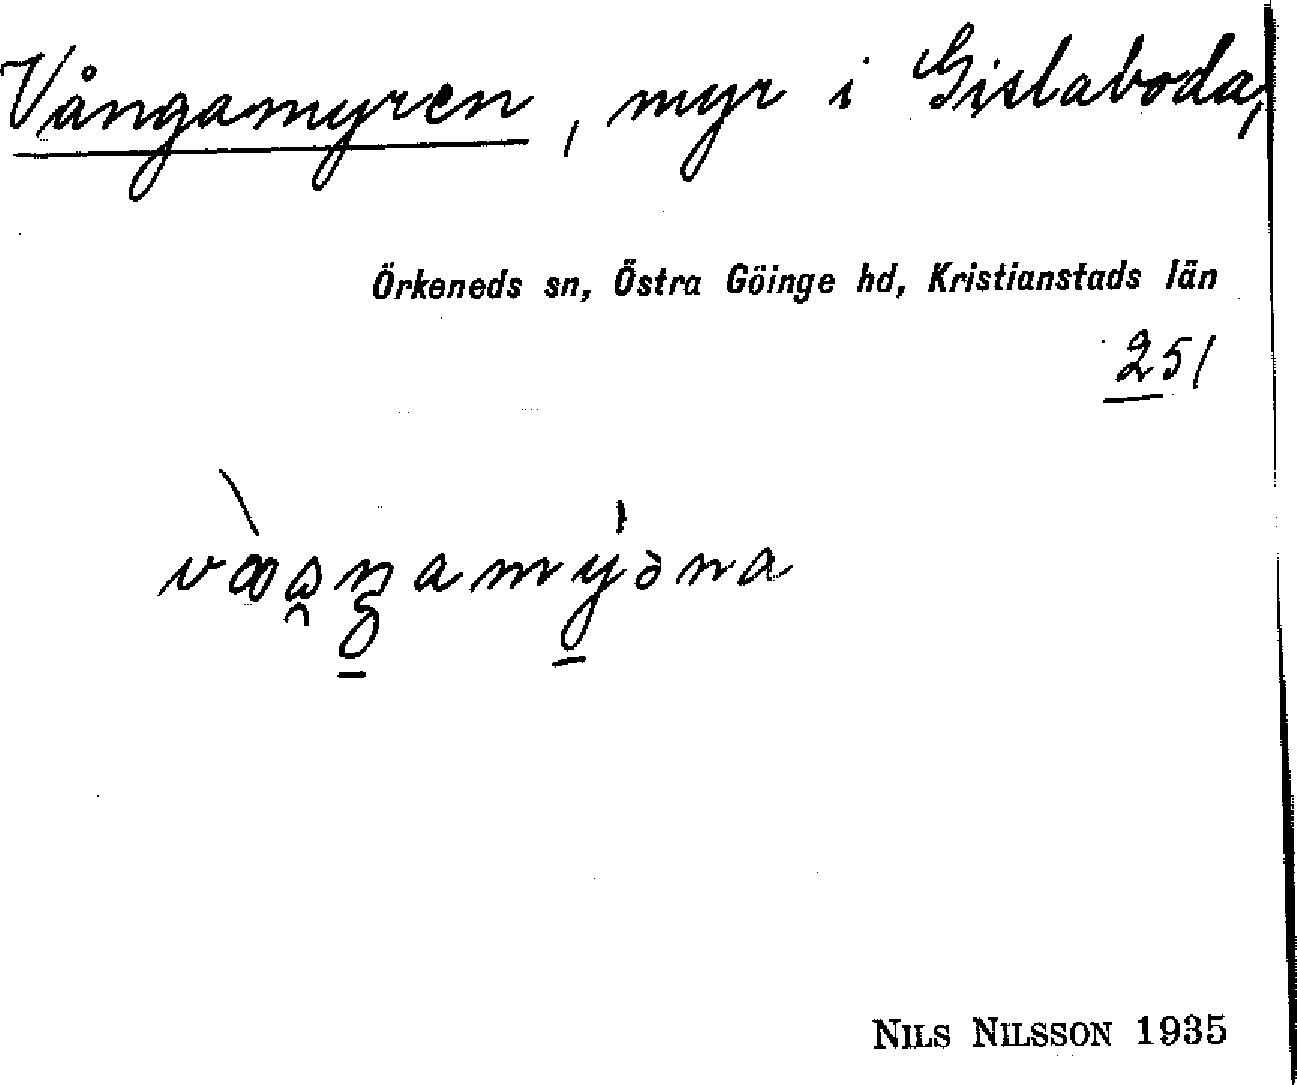 Vångamyren, myr i Gislaboda,
Örkeneds sn, Östra Göinge hd, Kristianstads län
251
NILS NILSSON 1935